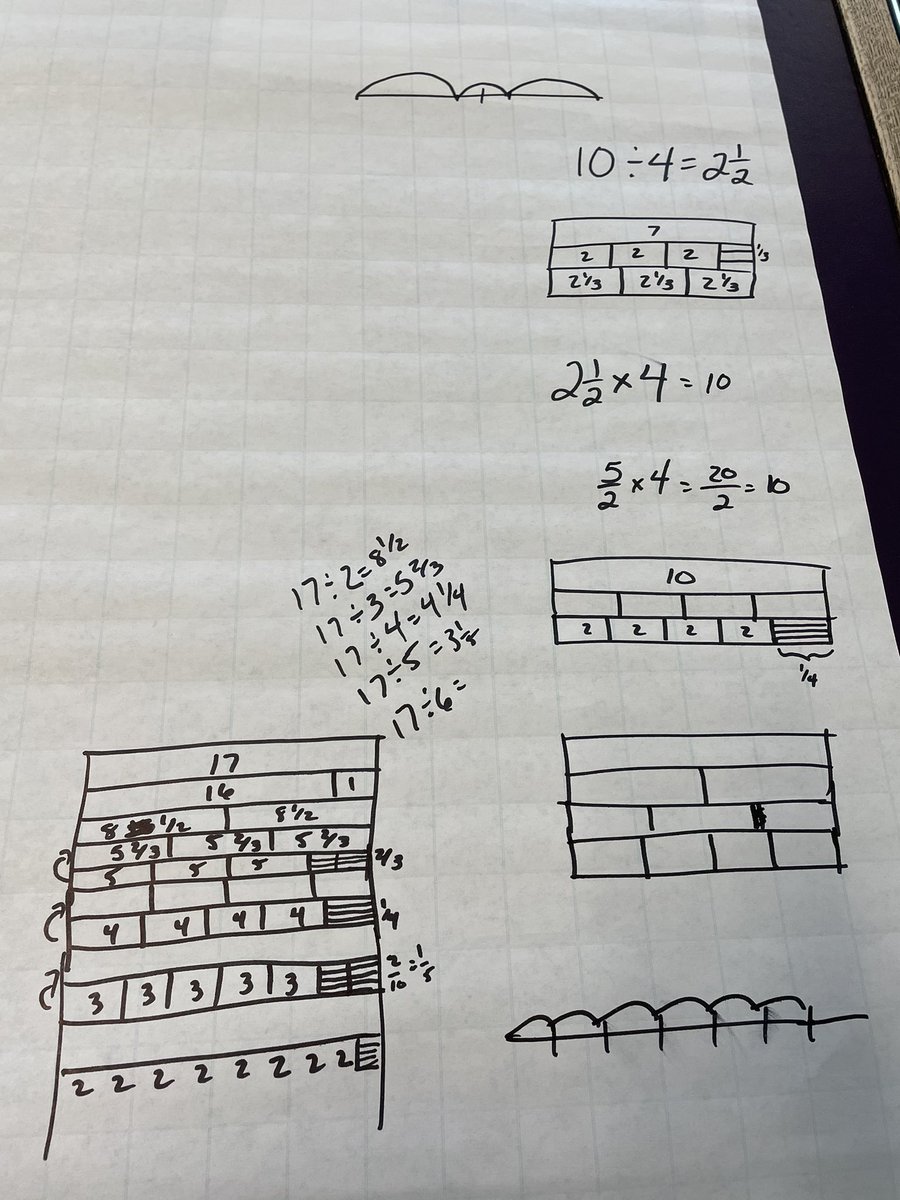 10 ÷ 4 = 2 1/2
7
2 2 2 1/3
2 1/3 2 1/3 2 1/3
2 1/2 × 4 = 10
5/2 × 4 = 20/2 = 10
10
2 2 2 2
1/4
17 ÷ 2 = 8 1/2
17 ÷ 3 = 5 2/3
17 ÷ 4 = 4 1/4
17 ÷ 5 = 3 1/5
17 ÷ 6 =
17
16 1
8 1/2 8 1/2
5 2/3 5 2/3 5 2/3
5 5 5 2/3
4 4 4 4 1/4
3 3 3 3 3 2/10 = 1/5
2 2 2 2 2 2 2